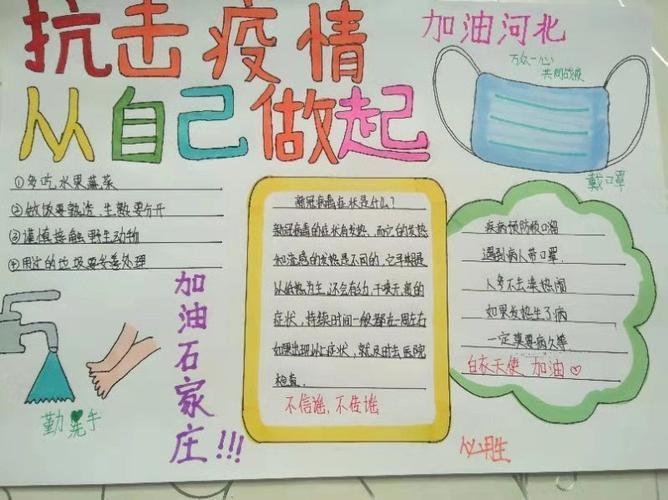 抗击疫情
从自己做起
加油河北
万众一心
共同战疫
戴口罩
①多吃水果蔬菜
②做饭要熟透,生熟要分开
③谨慎接触野生动物
④用过的垃圾要妥善处理
加油石家庄!!!
勤洗手
新冠病毒症状是什么?
新冠病毒的症状有发热,而它的发热
和流感的发热是不同的,它早期是
以低热为主,还会有乏力,干咳
症状,持续时间一般都在一周左右
如果出现以上症状,就及时去医院
检查.
不信谣,不传谣
疾病预防顺口溜
遇到病人带口罩.
人多不去凑热闹
如果发热生了病
一定莫要病久等
白衣天使 加油♡
必胜